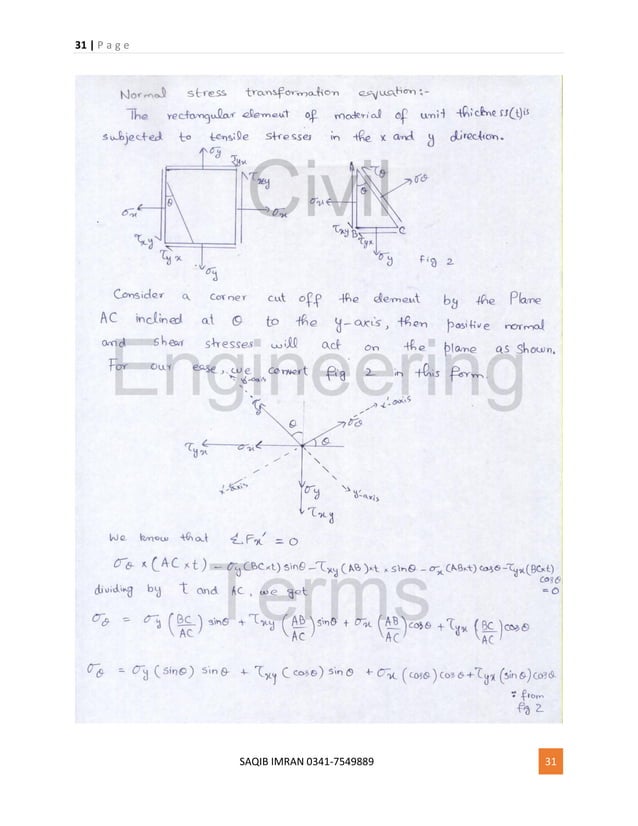 31 | P a g e
Normal stress transformation equation :-
The rectangular element of material of unit thickness (t) is
subjected to tensile stresses in the x and y direction.
σy
τyx
τxy
θ
σx
σx
τxy
τyx
σy
A
τθ
θ
σθ
σx
τxy
B
C
τyx
σy
Fig 2
Civil
Consider a corner cut off the element by the Plane
AC inclined at θ to the y-axis, then positive normal
and shear stresses will act on the plane as shown.
For our ease, we convert fig 2 in this form.
Engineering
y'-axis
x'-axis
τθ
θ
σθ
θ
τyx
σx
x'-axis
σy
y'-axis
τxy
We know that ΣFx' = 0
σθ × (AC × t) - σy(BC×t) sinθ - τxy (AB)×t × sinθ - σx (AB×t) cosθ - τyx (BC×t)
cosθ
= 0
dividing by t and AC, we get
Terms
σθ = σy (BC/AC) sinθ + τxy (AB/AC) sinθ + σx (AB/AC) cosθ + τyx (BC/AC) cosθ
σθ = σy (sinθ) sinθ + τxy (cosθ) sinθ + σx (cosθ) cosθ + τyx (sinθ) cosθ
∵ from
fig 2
SAQIB IMRAN 0341-7549889
31